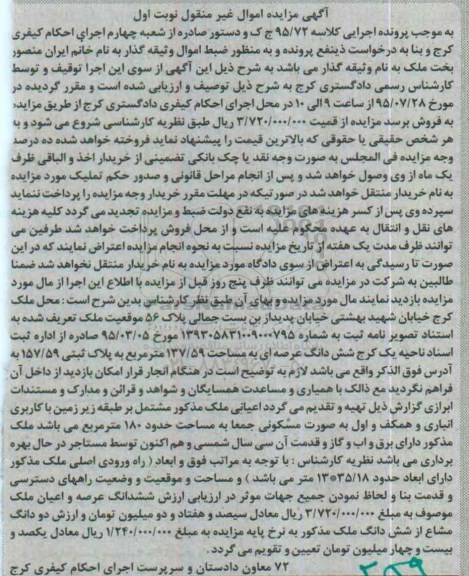 آگهی مزایده اموال غیر منقول نوبت اول
به موجب پرونده اجرایی کلاسه ۹۵/۷۲ ج ک و دستور صادره از شعبه چهارم اجرای احکام کیفری
کرج و بنا به درخواست ذینفع پرونده و به منظور ضبط اموال وثیقه گذار به نام خانم ایران منصور
بخت ملک به نام وثیقه گذار می باشد به شرح ذیل این آگهی از سوی این اجرا توقیف و توسط
کارشناس رسمی دادگستری کرج به شرح ذیل توصیف و ارزیابی شده است و مقرر گردیده در
مورخ ۹۵/۰۷/۲۸ از ساعت ۹ الی ۱۰ در محل اجرای احکام کیفری دادگستری کرج از طریق مزایده
به فروش برسد مزایده از قمیت ۳/۷۲۰/۰۰۰/۰۰۰ ریال طبق نظریه کارشناسی شروع می شود و به
هر شخص حقیقی یا حقوقی که بالاترین قیمت را پیشنهاد نماید فروخته خواهد شد ده درصد
وجه مزایده فی المجلس به صورت وجه نقد یا چک بانکی تضمینی از خریدار اخذ و الباقی ظرف
یک ماه از وی وصول خواهد شد و پس از انجام مراحل قانونی و صدور حکم تملیک مورد مزایده
به نام خریدار منتقل خواهد شد در صورتیکه در مهلت مقرر خریدار وجه مزایده را پرداخت ننماید
سپرده وی پس از کسر هزینه های مزایده به نفع دولت ضبط و مزایده تجدید می گردد کلیه هزینه
های نقل و انتقال به عهده محکوم علیه است و از محل فروش پرداخت خواهد شد طرفین می
توانند ظرف مدت یک هفته از تاریخ مزایده نسبت به نحوه انجام مزایده اعتراض نمایند که در این
صورت تا رسیدگی به اعتراض از سوی دادگاه مورد مزایده به نام خریدار منتقل نخواهد شد ضمنا
طالبین به شرکت در مزایده می توانند ظرف پنج روز قبل از مزایده با اطلاع این اجرا از مال مورد
مزایده بازدید نمایند مال مورد مزایده و بهای آن طبق نظر کارشناس بدین شرح است: محل ملک
کرج خیابان شهید بهشتی خیابان پدیدار بن بست جمالی پلاک ۵۶ موقعیت ملک تعریف شده به
استناد تصویر نامه ثبت به شماره ۱۳۹۳۰۵۸۳۱۰۰۹۰۰۰۷۹۵ مورخ ۹۵/۰۳/۰۵ صادره از اداره ثبت
اسناد ناحیه یک کرج شش دانگ عرصه ای به مساحت ۱۳۷/۵۹ مترمربع به پلاک ثبتی ۱۵۷/۵۹ به
آدرس فوق الذکر واقع می باشد لازم به توضیح است در هنگام انجار قرار امکان بازدید از داخل آن
فراهم نگردید مع ذالک با همیاری و مساعدت همسایگان و شواهد و قرائن و مدارک و مستندات
ابرازی گزارش ذیل تهیه و تقدیم می گردد اعیانی ملک مذکور مشتمل بر طبقه زیر زمین با کاربری
انباری و همکف و اول به صورت مسکونی جمعا به مساحت حدود ۱۸۰ مترمربع می باشد ملک
مذکور دارای برق و اب و گاز و قدمت آن سی سال شمسی و هم اکنون توسط مستاجر در حال بهره
برداری می باشد نظریه کارشناس: با توجه به مراتب فوق و ابعاد ( راه ورودی اصلی ملک مذکور
دارای ابعاد حدود ۳۵/۱۸*۱۳ متر می باشد ) و مساحت و موقعیت و وضعیت راههای دسترسی
و قدمت بنا و لحاظ نمودن جمیع جهات موثر در ارزیابی ارزش ششدانگ عرصه و اعیان ملک
موصوف به مبلغ ۳/۷۲۰/۰۰۰/۰۰۰ ریال معادل سیصد و هفتاد و دو میلیون تومان و ارزش دو دانگ
مشاع از شش دانگ ملک مذکور به نرخ پایه مزایده به مبلغ ۱/۲۴۰/۰۰۰/۰۰۰ ریال معادل یکصد و
بیست و چهار میلیون تومان تعیین و تقویم می گردد.
۷۲ معاون دادستان و سرپرست اجرای احکام کیفری کرج